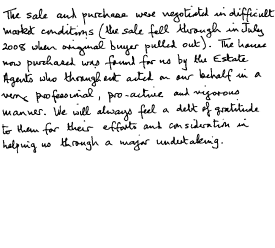 The sale and purchase were negotiated in difficult
market conditions (the sale fell through in July
2008 when original buyer pulled out). The house
now purchased was found for us by the Estate
Agents who throughout acted on our behalf in a
very professional, pro-active and vigorous
manner. We will always feel a debt of gratitude
to them for their efforts and consideration in
helping us through a major undertaking.